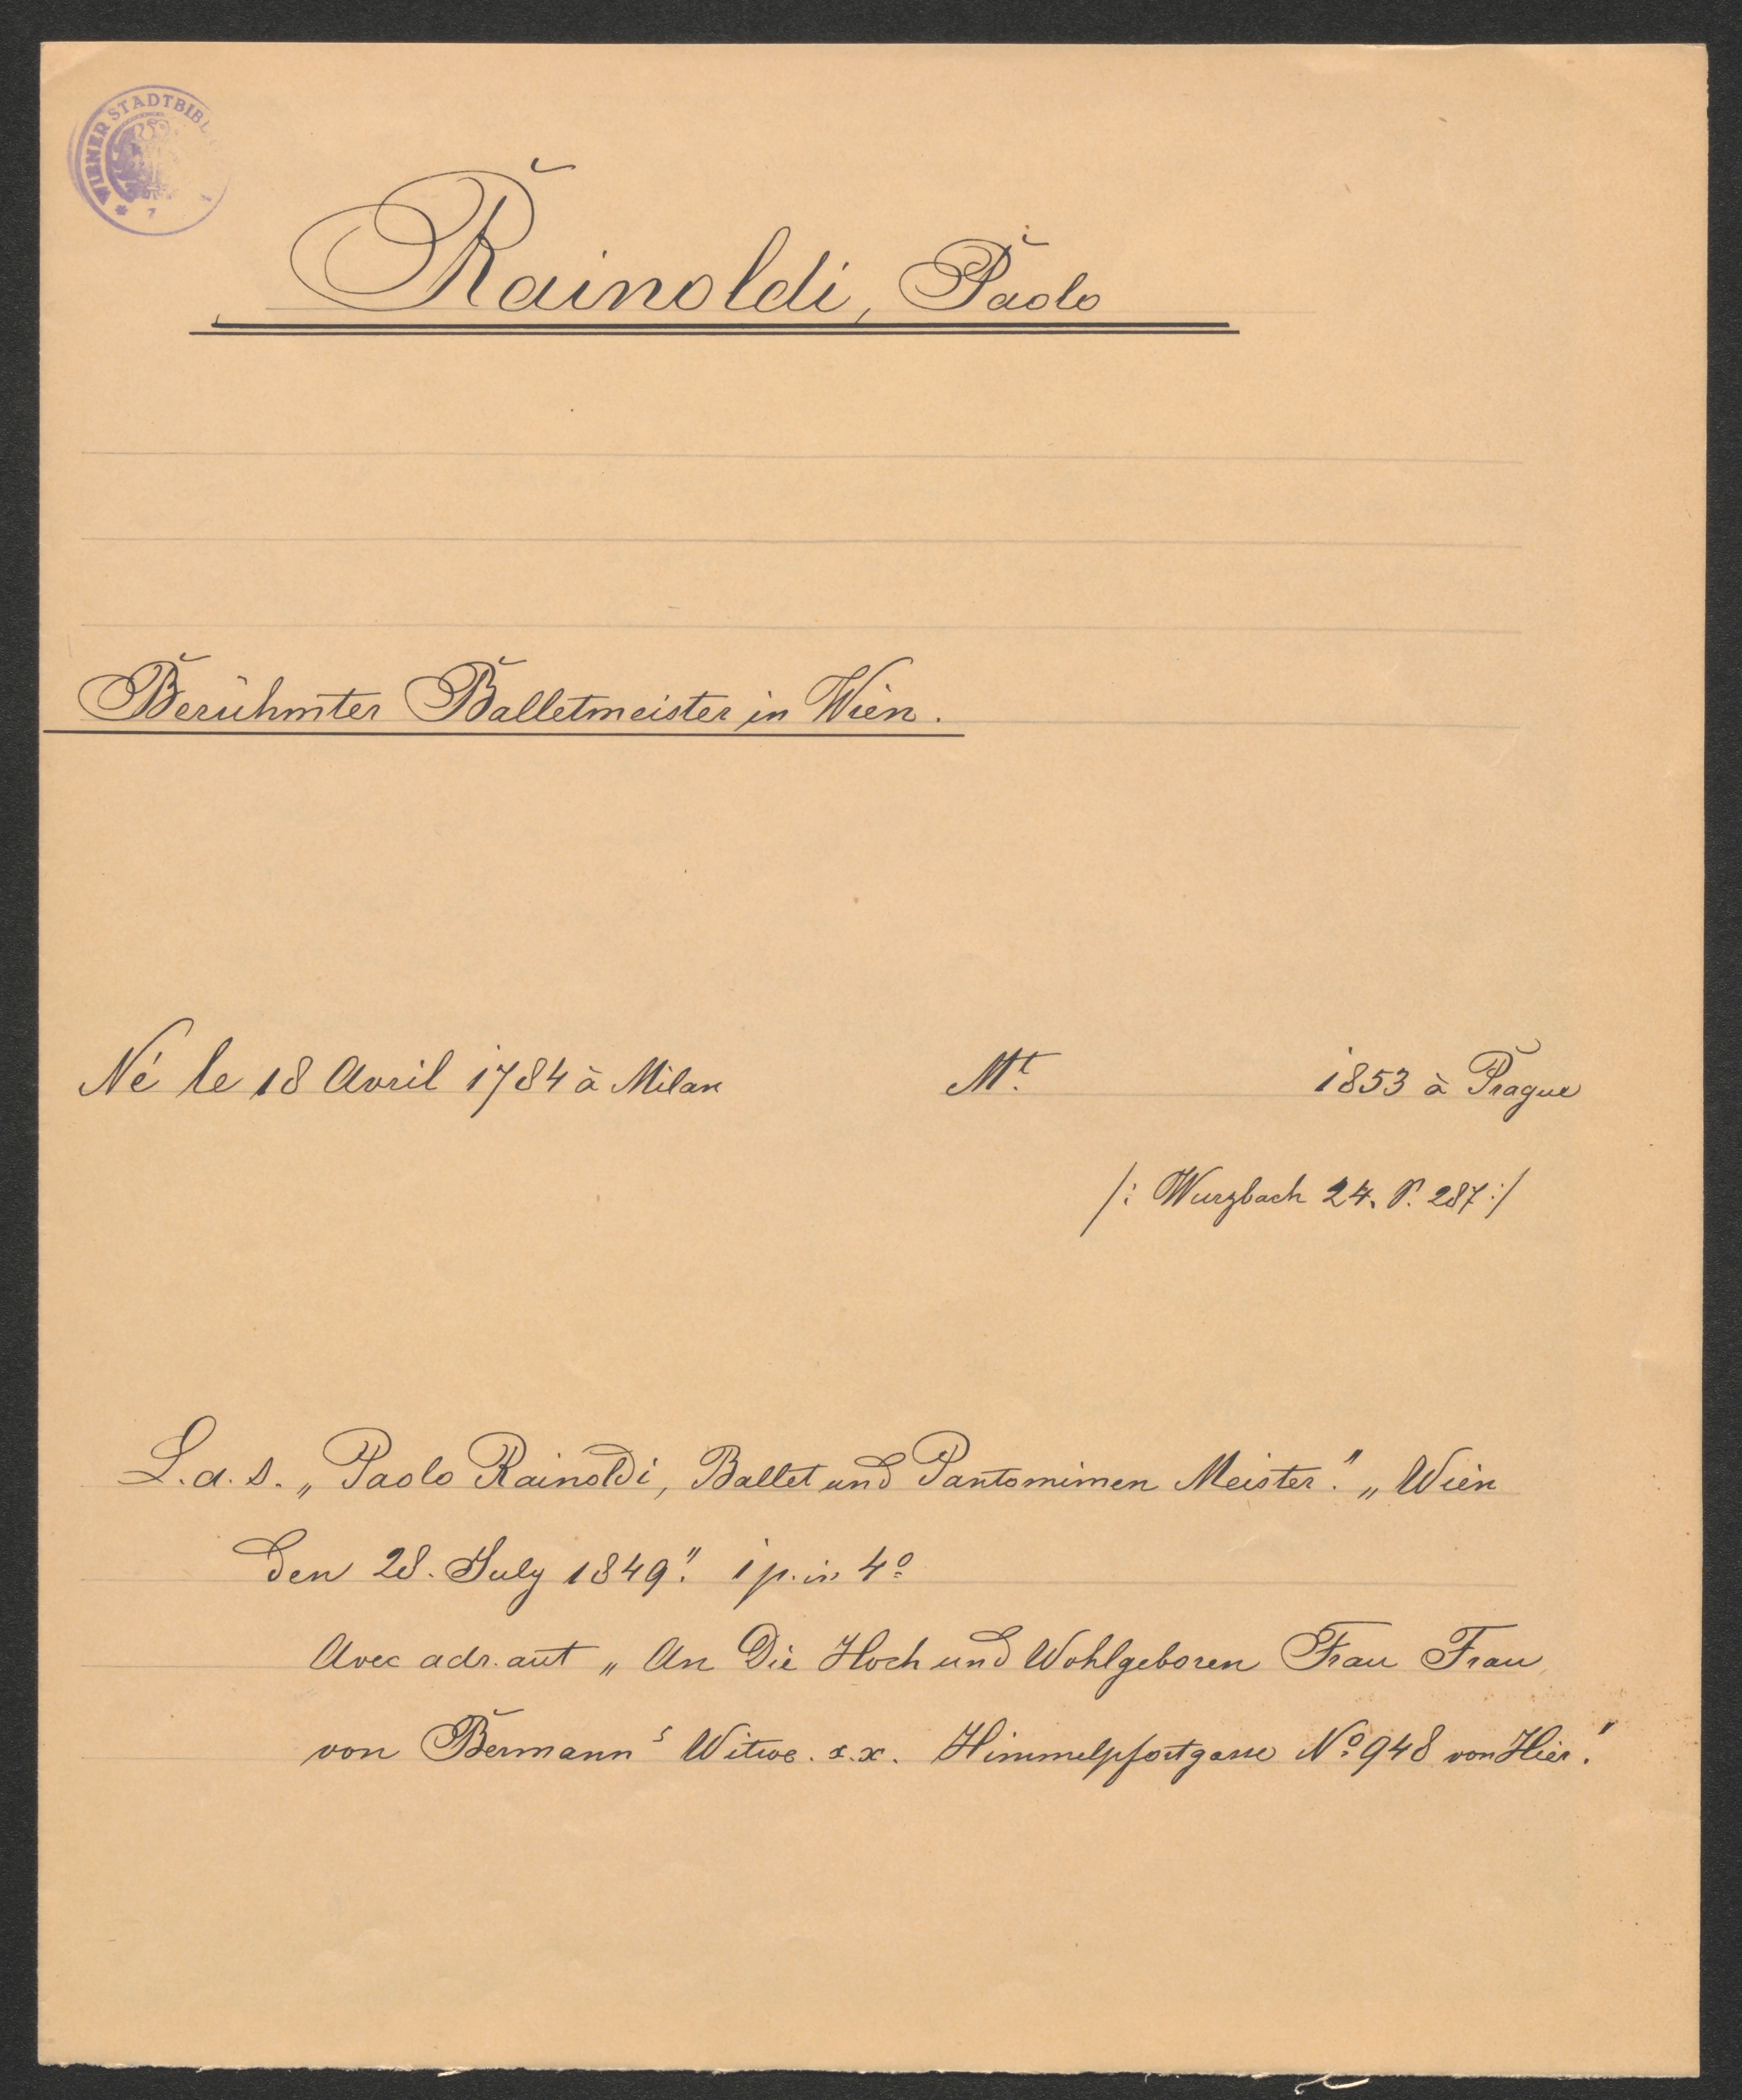 WIENER STADTBIBL
Rainoldi, Paolo
Berühmter Balletmeister in Wien.
Né le 18 Avril 1784 à Milan Mt. 1853 à Prague
/: Wurzbach 24. P. 287 :/
L. a. s. „Paolo Rainoldi, Ballet und Pantomimen Meister." „Wien
den 28. July 1849." 1 p. in 4o
Avec adr. aut „An Die Hoch und Wohlgeboren Frau Frau
von Bermanns Witwe. x.x. Himmelpfortgasse No. 948 von Hier."